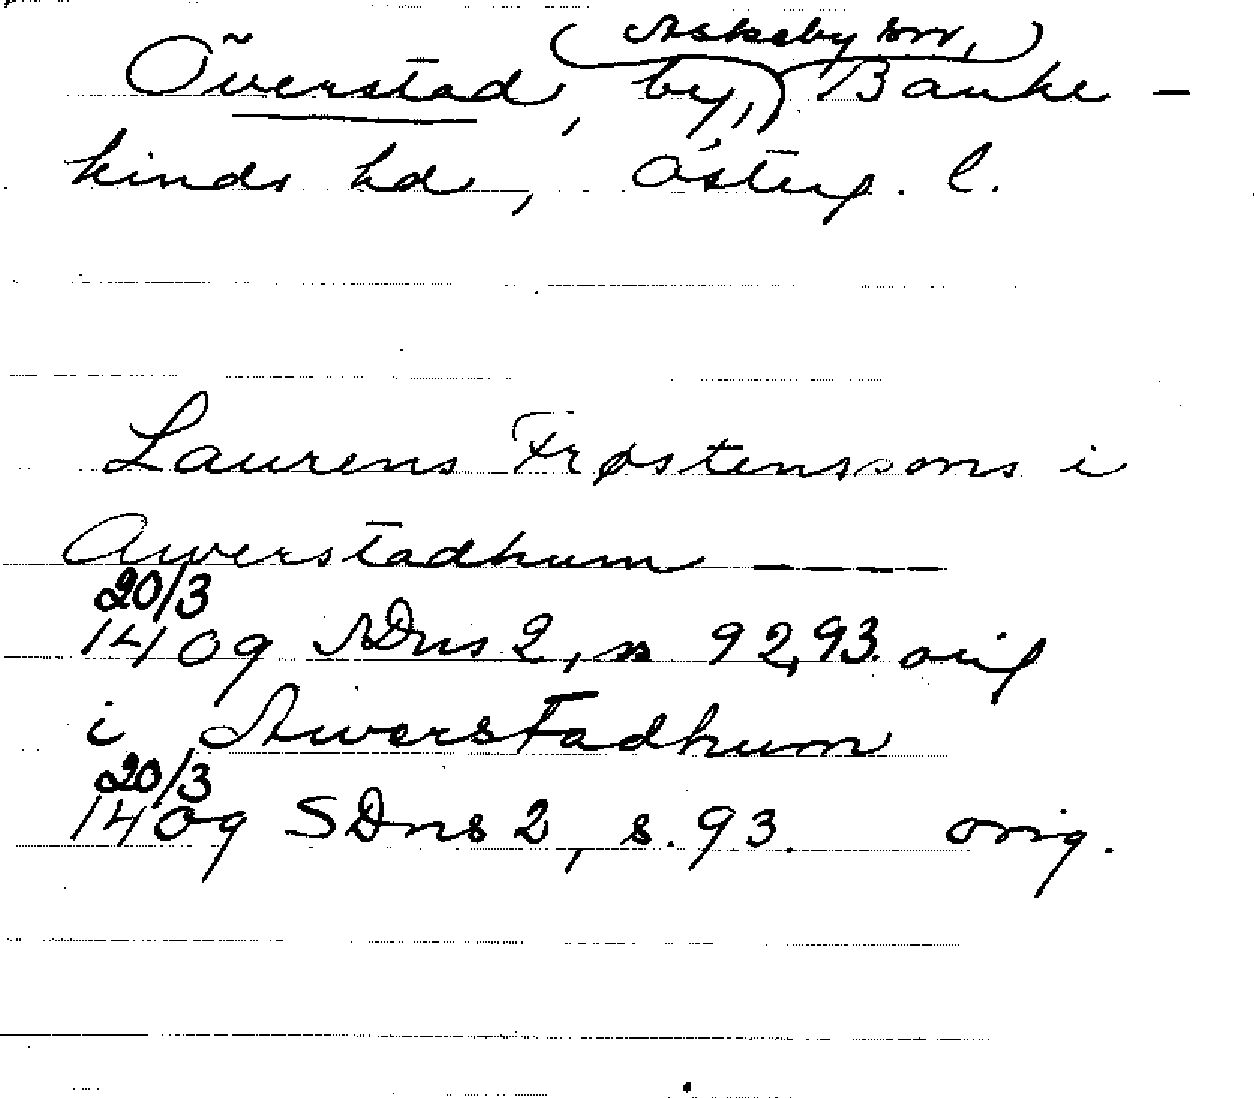 (Askeby sn,)
Överstad, by, Banke-
kinds hd, Österg. l.
Laurens Frøstenssons i
Awerstadhum ———
20/3
1409 SDns 2, s. 92,93. orig
i Awerstadhum
20/3
1409 SDns 2, s. 93. orig.